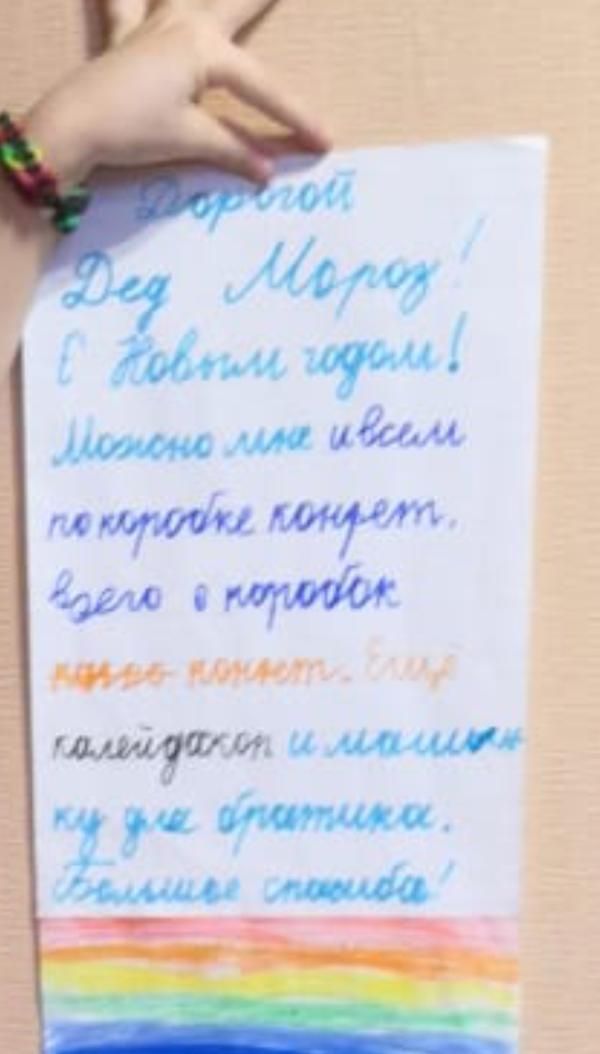 Дорогой
Дед Мороз!
С Новым годом!
Можно мне и всем
по коробке конфет.
коробок
конфет. Ещё
калейдоскоп и машин
ку для братика.
Большое спасибо!